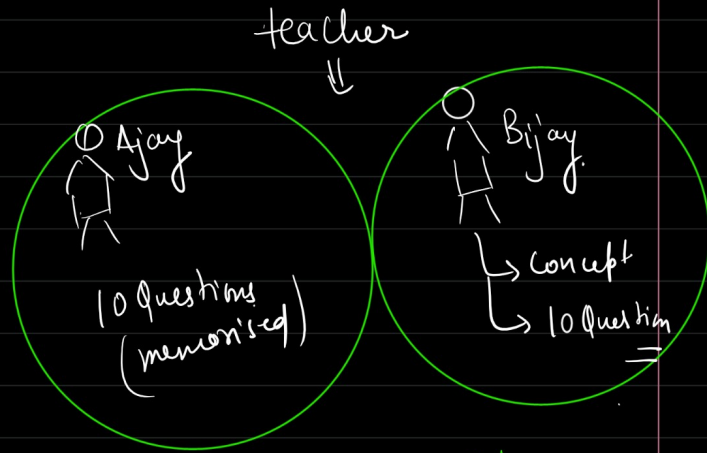 teacher
Ajay
10 Questions
(memorised)
Bijay
concept
10 Question